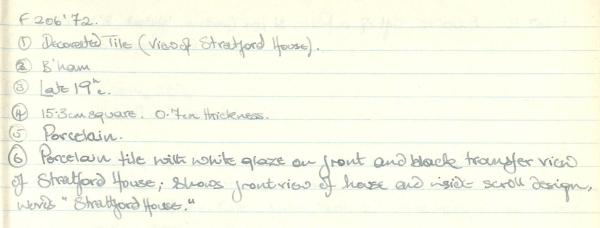 F206'72.
① Decorated Tile (View of Stratford House).
② B'ham
③ Late 19th c.
④ 15.3cm square. 0.7cm thickness.
⑤ Porcelain.
⑥ Porcelain tile with white glaze on front and black transfer view
of Stratford House; shows front view of house and inside scroll design,
words "Stratford House."